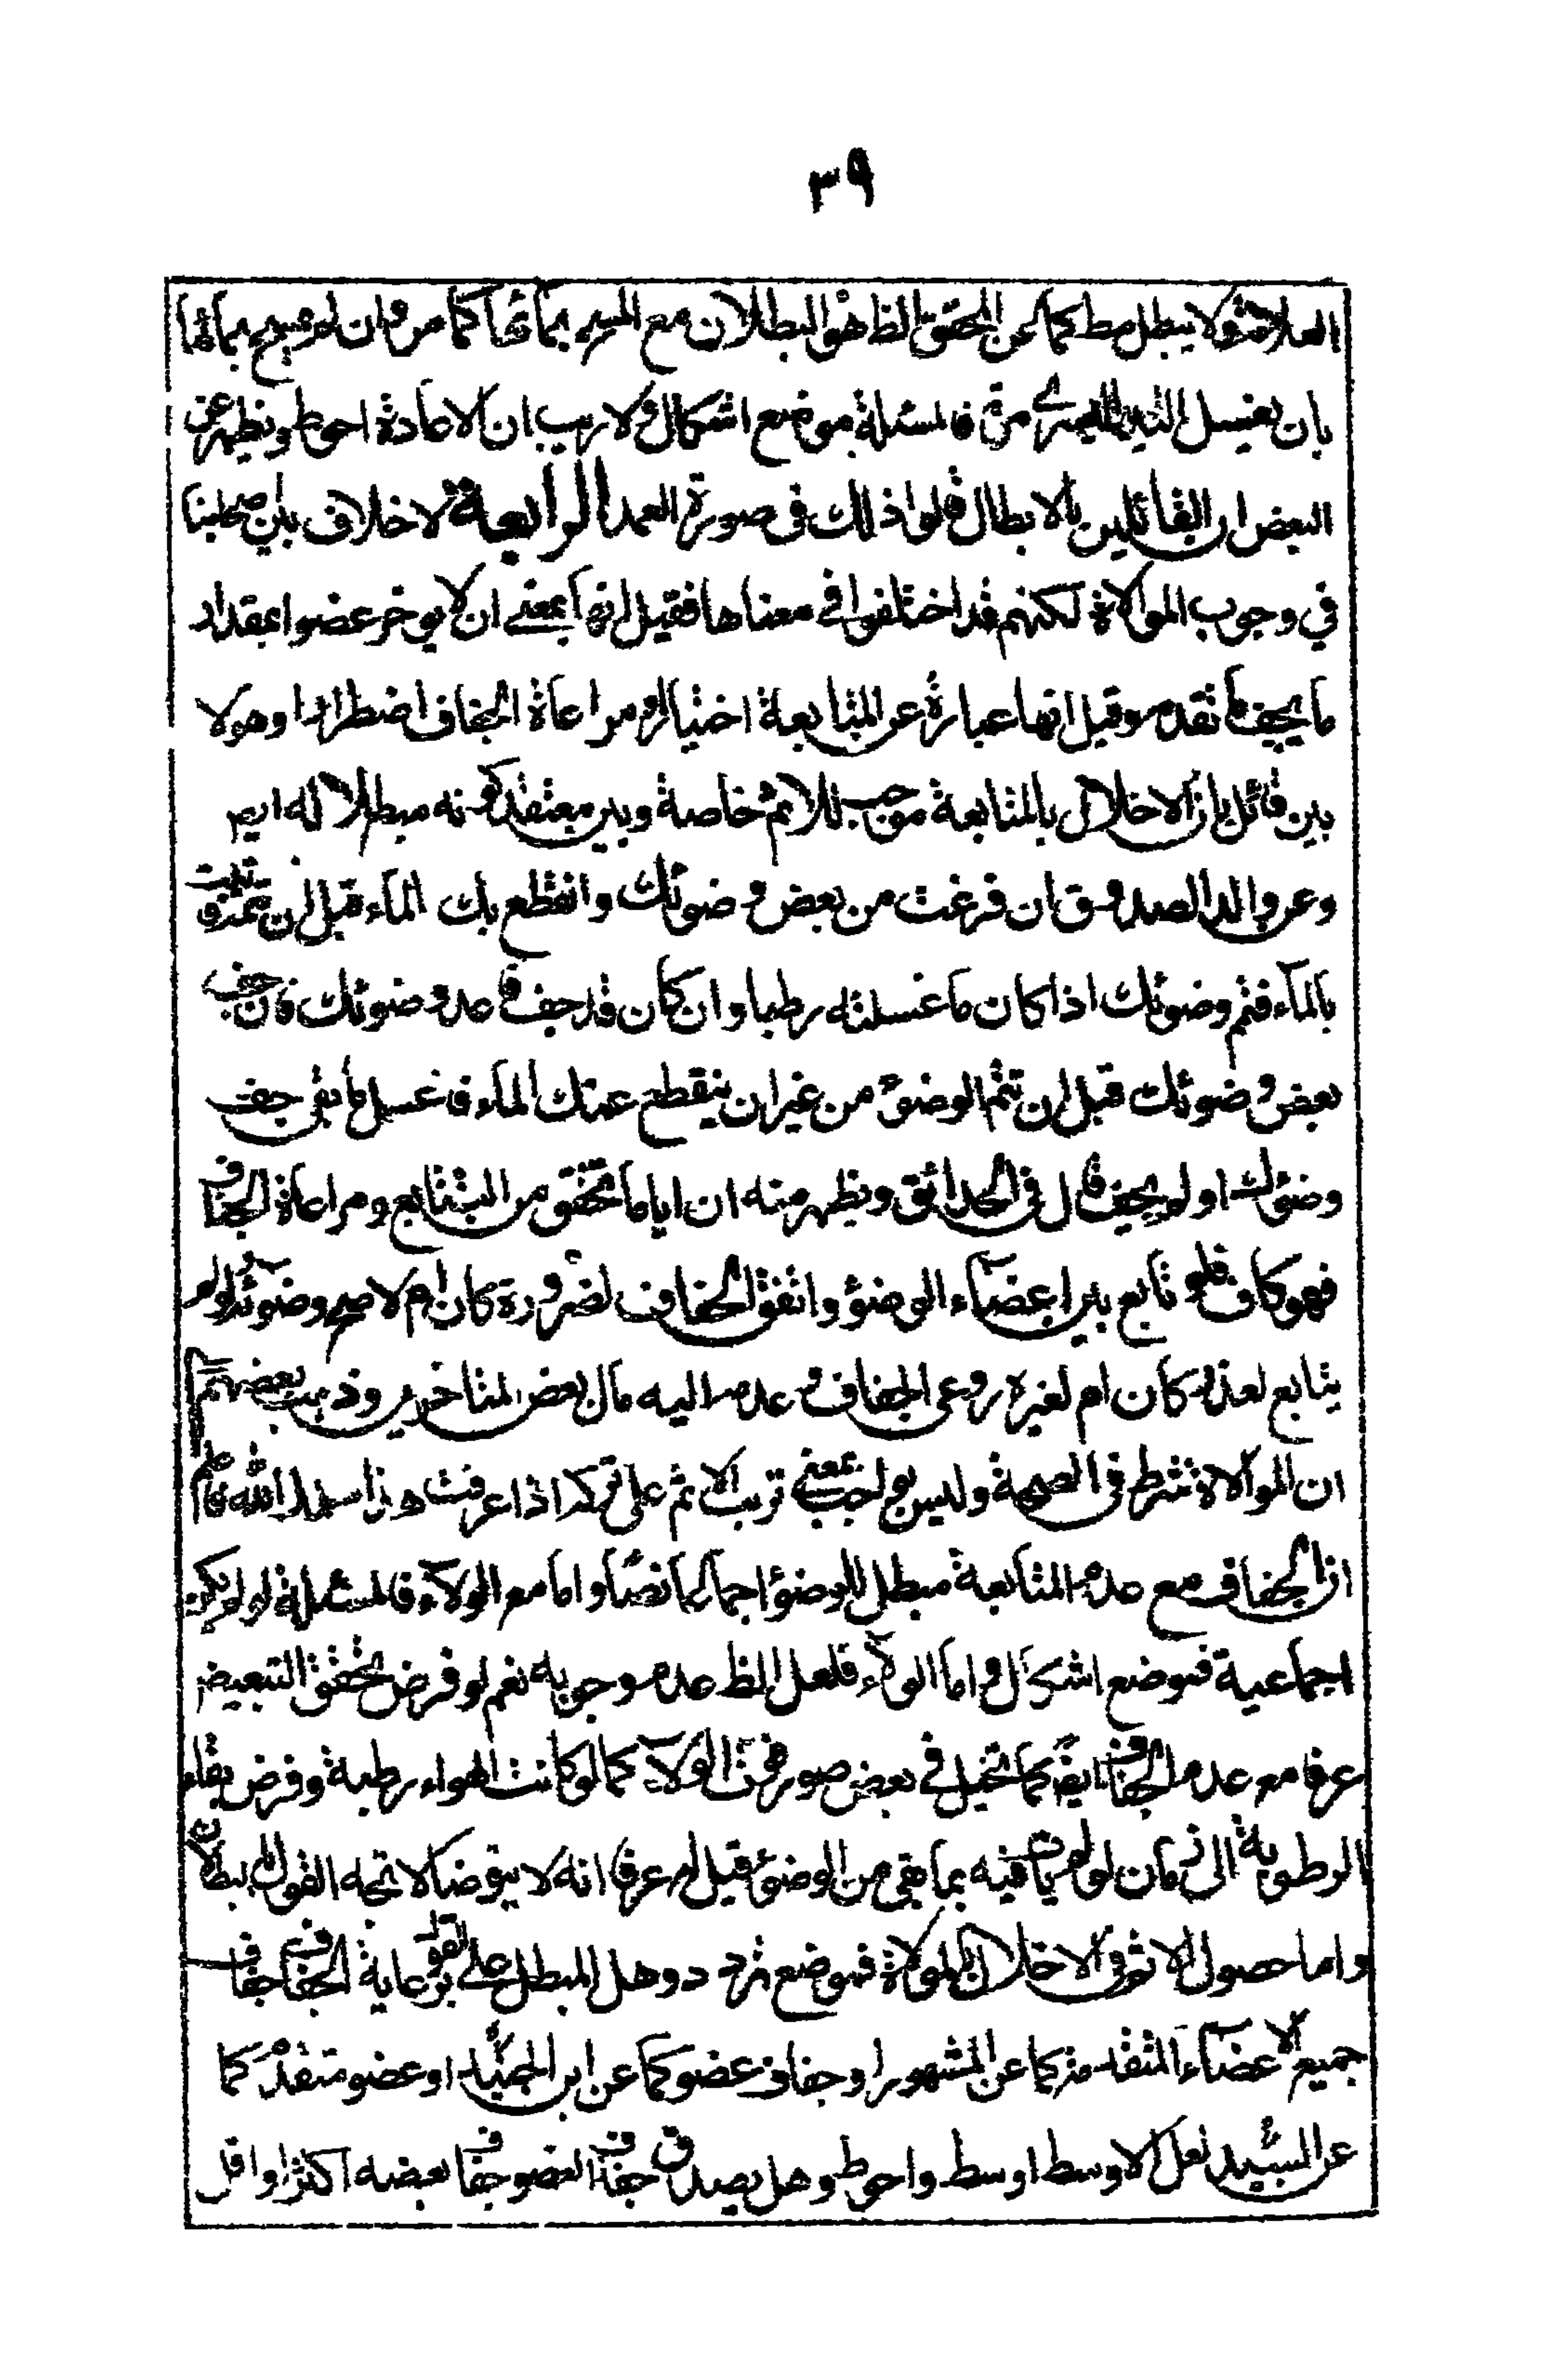 ٣٩
العلامة ولا يبطل مط كما عن المحقق الظ هو البطلان مع المسح بمائها كما مر وان لم يمسح بمائها
بان يغسل اليد اليسرى مرة فالمسئلة موضع اشكال ولا ريب ان الاعادة احوط ويظهر عن
البعض ان القائلين بالابطال قالوا ذلك فى صورة العمد الرابعة لا خلاف بين اصحابنا
في وجوب الموالاة لكنهم قد اختلفوا في معناها فقيل انها بمعنى ان لا يوخر عضوا بمقدار
ما يجف ما تقدم وقيل انها عبارة عن المتابعة اختيارا ومراعاة الجفاف اضطرارا وهولا
بين قائل بان الاخلال بالمتابعة موجب للاثم خاصة وبين معتقد كونه مبطلا له ايم
وعن والد الصدوق ان فرغت من بعض وضوئك وانقطع بك الماء قبل ان تتمه فاتيت
بالماء فتم وضوئك اذا كان ما غسلته رطبا وان كان قد جف فاعد وضوئك فان جف
بعض وضوئك قبل ان تتم الوضوء من غير ان ينقطع عنك الماء فاغسل ما بقى جف
وضوئك او لم يجف قال فى الحدائق ويظهر منه ان ايا ما تحقق من التتابع ومراعاة الجفاف
فهو كاف فلو تابع بين اعضاء الوضوء واتفق الجفاف لضرورة كان ام لا صح وضوئه ولو لم
يتابع لعذر كان ام لغيره روعى الجفاف وعدمه اليه مال بعض المتاخرين وذهب بعضهم الى
ان الموالاة شرط فى الصحة وليس بواجب بمعنى ترتب الاثم على تركه اذا عرفت هذا سددك الله فاعلم
ان الجفاف مع عدم المتابعة مبطل للوضوء اجماعا نصا واما مع الولاء فالمسئلة لو لم يكن
اجماعية فموضع اشكال واما الولاء فلعل الظ عدم وجوبه نعم لو فرض تحقق التبعيض
عرفا مع عدم الجفاف ايضا كما تخيل في بعض صور الولاء كما لو كانت الهواء رطبة وفرض بقاء
الرطوبة الى زمان لو لم يات فيه بما بقى من الوضوء قيل له عرفا انه لا يتوضا لاتجه القول بالبطلان
واما حصول الاثم فى الاخلال بالموالاة فموضع تردد وهل المبطل على القول برعاية الجفاف جفاف
جميع الاعضاء المتقدمة كما عن المشهور او جفاف عضو كما عن ابن الجنيد او عضو متقدم كما
عن السيد لعل الاوسط اوسط واحوط وهل يصدق جفاف العضو جفاف بعضه اكثرا او اقل